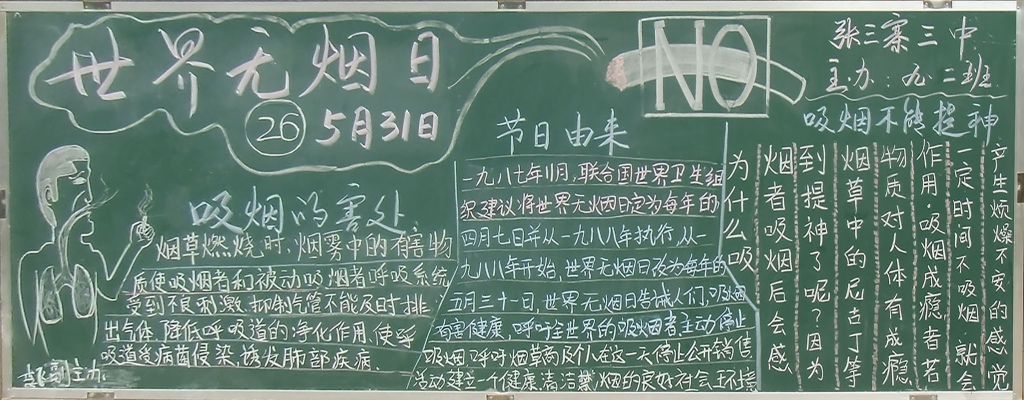 世界无烟日
26 5月31日
NO
张三寨三中
主办:九二班
吸烟的害处
烟草燃烧时,烟雾中的有害物
质使吸烟者和被动吸烟者呼吸系统
受到不良刺激,抑制气管不能及时排
出气体,降低呼吸道的净化作用,使呼
吸道受病菌侵染,诱发肺部疾病.
主办
节日由来
一九八七年11月,联合国世界卫生组
织建议将世界无烟日定为每年的
四月七日并从一九八八年执行,从一
九八八年开始,世界无烟日改为每年的
五月三十一日,世界无烟日告诫人们,吸烟
有害健康,呼吁全世界的吸烟者主动停止
吸烟,呼吁烟草商及个人在这一天停止公开销售
活动建立一个健康清洁禁烟的良好社会环境
吸烟不能提神
为什么吸
烟者吸烟后会感
到提神了呢?因为
烟草中的尼古丁等
物质对人体有成瘾
作用.吸烟成瘾者若
一定时间不吸烟就会
产生烦燥不安的感觉